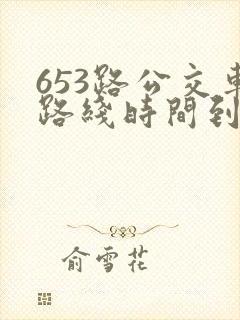 653路公交車
路綫時間到
俞雪花